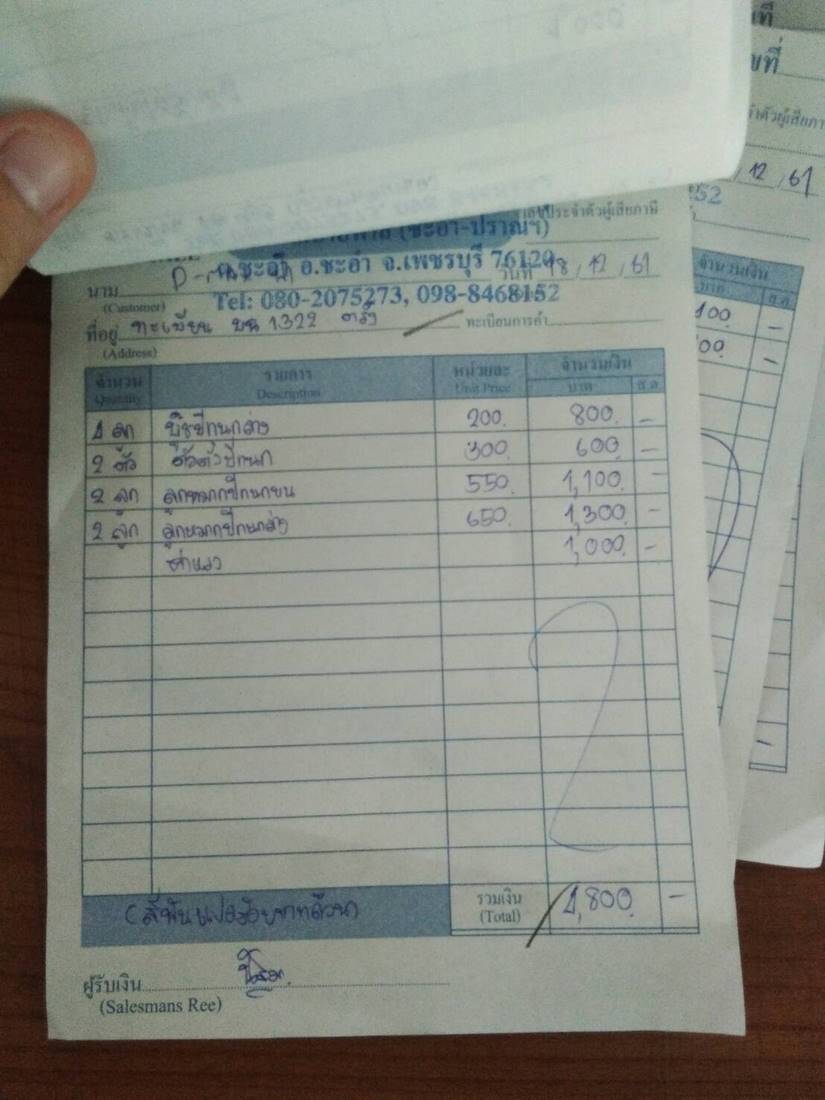 ที่
เลขที่
ประจำตัวผู้เสียภาษี
(ชะอำ-ปราณฯ)
ต.ชะอำ อ.ชะอำ จ.เพชรบุรี 76120
นาม วันที่ 18/12/61
(Customer) Tel: 080-2075273, 098-8468152
ที่อยู่ ทะเบียน บน 1322 ตรัง ทะเบียนการค้า
(Address)
จำนวน รายการ หน่วยละ จำนวนเงิน
Quantity Description Unit Price บาท ส.ต.
4 ลูก บู๊ชปีกนกล่าง 200. 800. -
2 ตัว ปีกนก 300. 600. -
2 ลูก ลูกหมากปีกนกบน 550. 1,100. -
2 ลูก ลูกหมากปีกนกล่าง 650. 1,300. -
ค่าแรง 1,000. -
(สี่พันแปดร้อยบาทถ้วน) รวมเงิน 4,800. -
(Total)
ผู้รับเงิน
(Salesmans Ree)
12/61
52
จำนวนเงิน
บาท ส.ต.
100. -
00. -